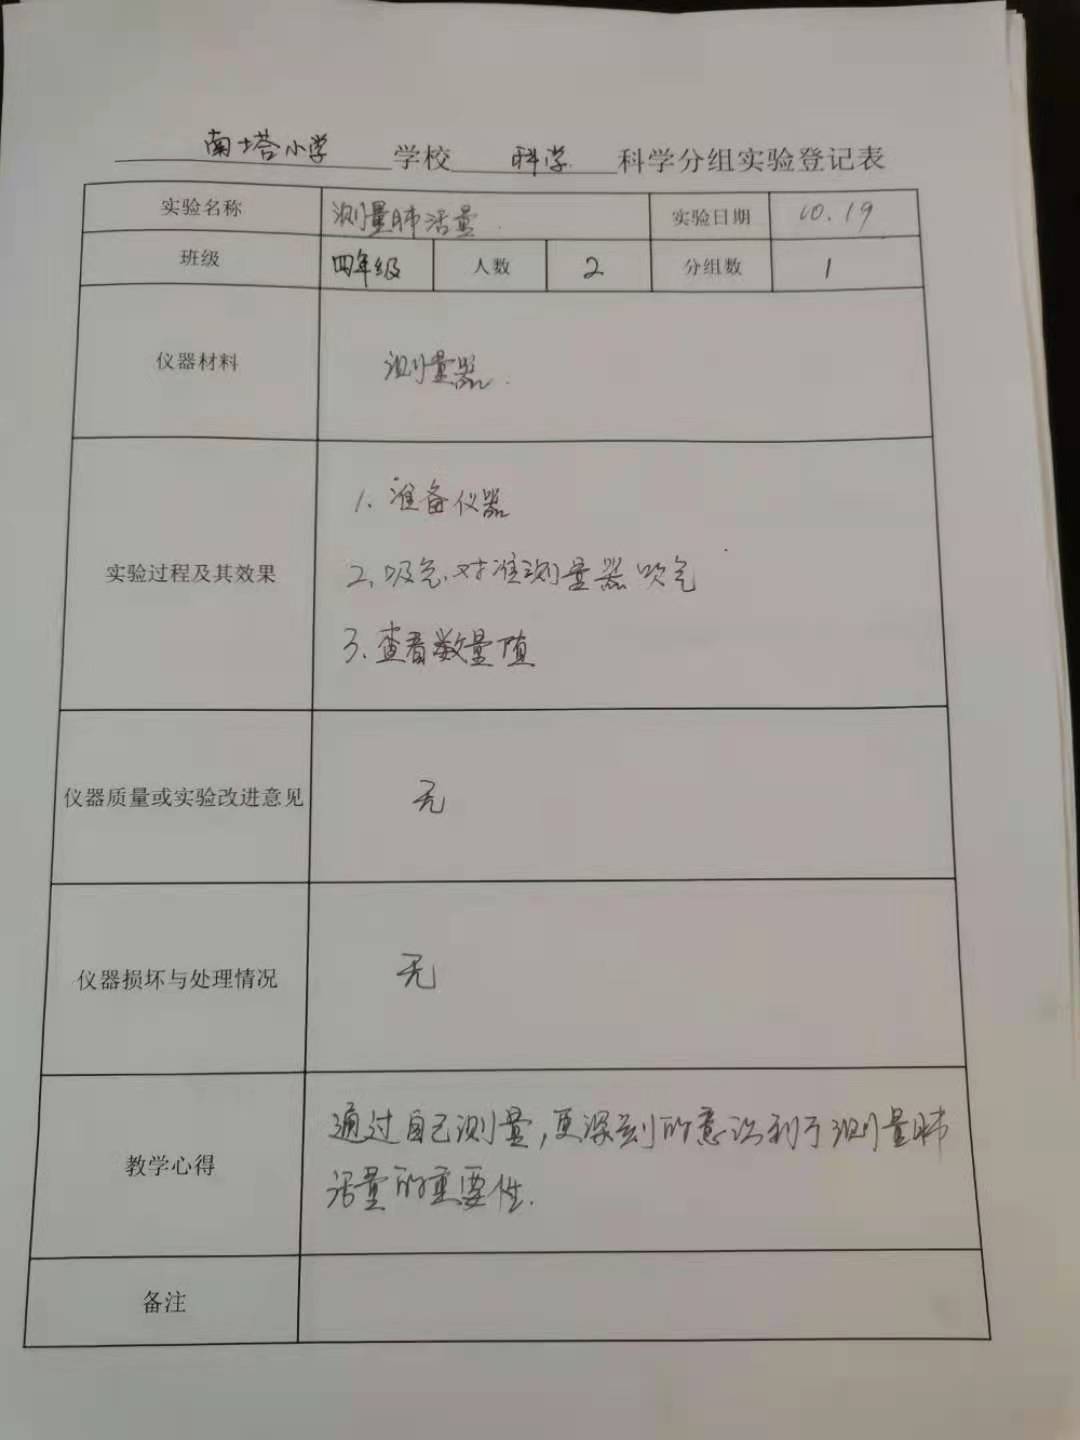 南塔小学 学校 科学 科学分组实验登记表
实验名称 测量肺活量. 实验日期 10.19
班级 四年级 人数 2 分组数 1
仪器材料 测量器.
实验过程及其效果
1. 准备仪器
2、吸气、对准测量器吹气
3、查看数量值
仪器质量或实验改进意见 无
仪器损坏与处理情况 无
教学心得
通过自己测量,更深刻的意识到了测量肺
活量的重要性.
备注